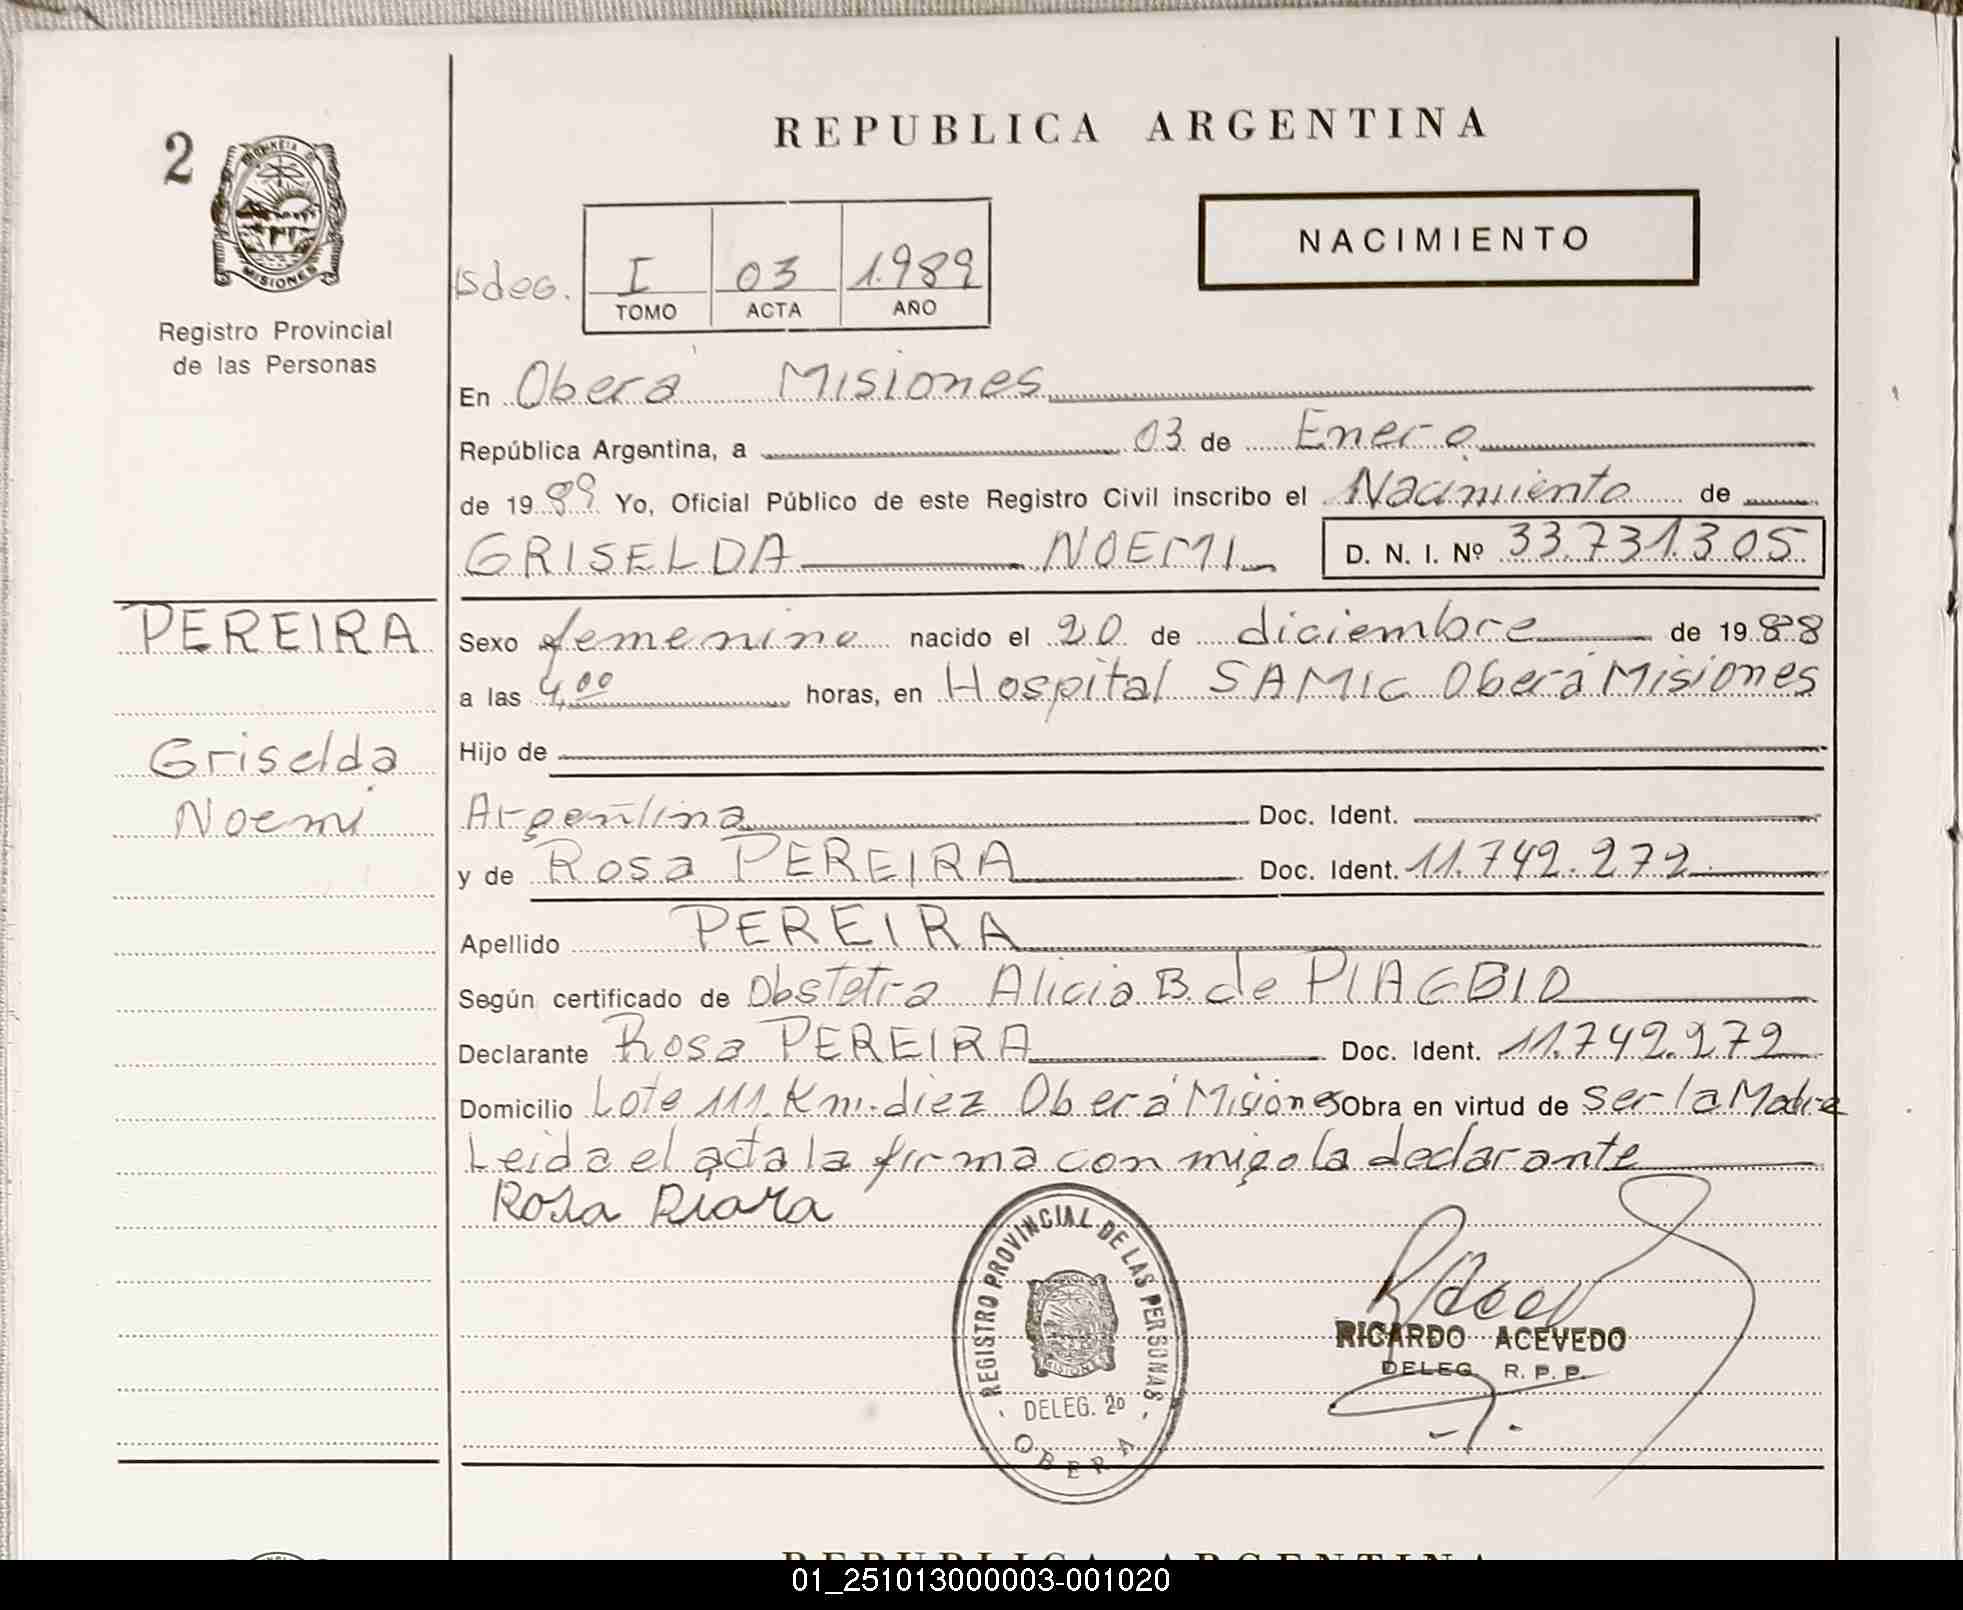 REPUBLICA ARGENTINA
2
PROVINCIA DE
MISIONES
Registro Provincial
de las Personas
NACIMIENTO
I 03 1.989
TOMO ACTA AÑO
En Oberá Misiones
República Argentina, a 03 de Enero
de 1989 Yo, Oficial Público de este Registro Civil inscribo el Nacimiento de
GRISELDA NOEMI D. N. I. Nº 33.731.305
PEREIRA
Griselda
Noemi
Sexo femenino nacido el 20 de diciembre de 1988
a las 4,00 horas, en Hospital SAMIC Oberá Misiones
Hijo de
Argentina Doc. Ident.
y de Rosa PEREIRA Doc. Ident. 11.742.272
Apellido PEREIRA
Según certificado de Obstetra Alicia B. de
Declarante Rosa PEREIRA Doc. Ident. 11.742.272
Domicilio Lote 111. Km. diez Oberá Misiones Obra en virtud de ser la Madre
Leida el acta la firma con migo la declarante
Rosa
REGISTRO PROVINCIAL DE LAS PERSONAS
MISIONES
DELEG. 2º
OBERA
RICARDO ACEVEDO
DELEG. R. P. P.
REPUBLICA ARGENTINA
01_251013000003-001020